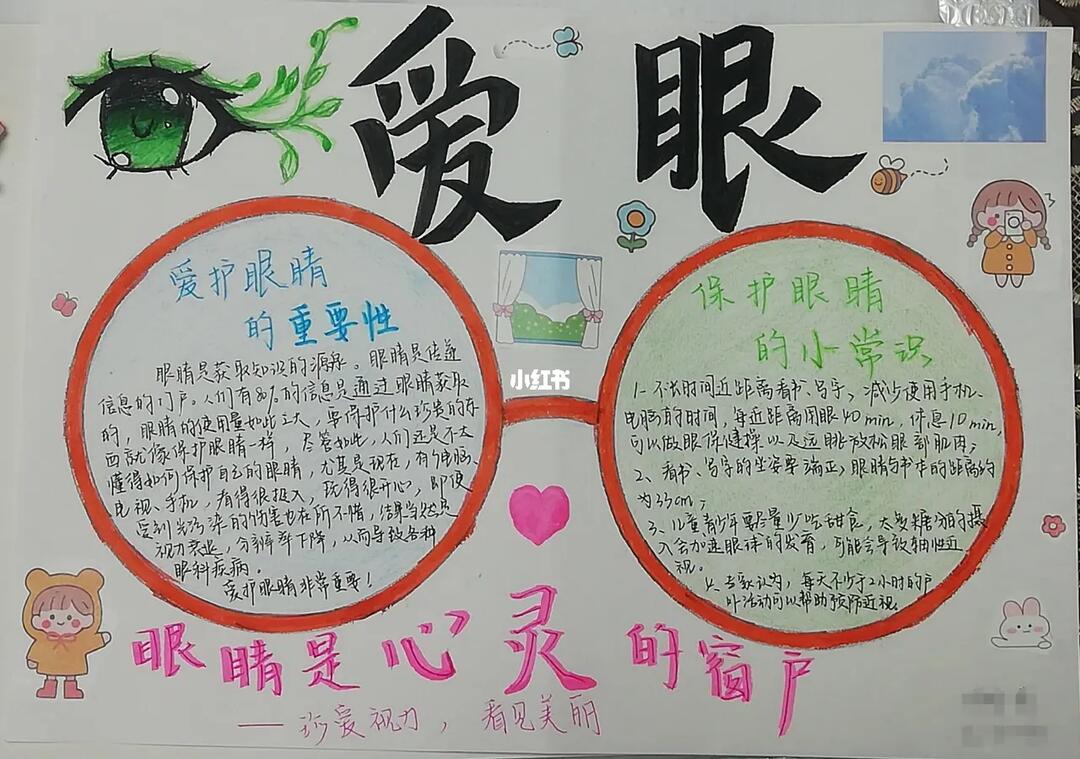 爱眼
爱护眼睛
的重要性
眼睛是获取知识的源泉。眼睛是传递
信息的门户。人们有80%的信息是通过眼睛获取
的，眼睛的使用量如此之大，要保护什么珍贵的东
西就像保护眼睛一样，尽管如此，人们还是不太
懂得如何保护自己的眼睛，尤其是现在，有了电脑、
电视、手机，看得很投入，玩得很开心，即使
受到光污染的伤害也在所不惜，结果当然是
视力衰退，分辨率下降，从而导致各种
眼科疾病。
爱护眼睛非常重要！
小红书
保护眼睛
的小常识
1、不长时间近距离看书、写字，减少使用手机、
电脑的时间，每近距离用眼40min，休息10min，
可以做眼保健操以及远眺放松眼部肌肉；
2、看书、写字的坐姿要端正，眼睛与书本的距离约
为33cm；
3、儿童青少年要尽量少吃甜食，太多糖分的摄
入会加进眼球的发育，可能会导致轴性近
视。
4、专家认为，每天不少于2小时的户
外活动可以帮助预防近视。
眼睛是心灵的窗户
——珍爱视力，看见美丽